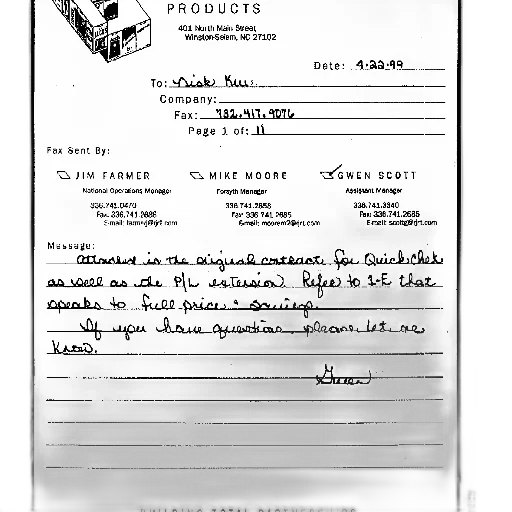 PRODUCTS
401 North Main Street
Winston-Salem, NC 27102
Date: 4-22-99
To: Nick
Company:
Fax: 732.417.9076
Page 1 of: 11
Fax Sent By:
JIM FARMER MIKE MOORE GWEN SCOTT
National Operations Manager Forsyth Manager Assistant Manager
336.741.0470 336.741.2858 336.741.3340
Fax: 336.741.2686 Fax: 336.741.2685 Fax: 336.741.2685
E-mail: farmerj@rjrt.com E-mail: moorem2@rjrt.com E-mail: scottg@rjrt.com
Message:
Attached is the original contract for Quick Chek
as well as the P/L extension. Refer to 1-E that
speaks to full price & savings.
If you have questions, please let me
know.
Gwen